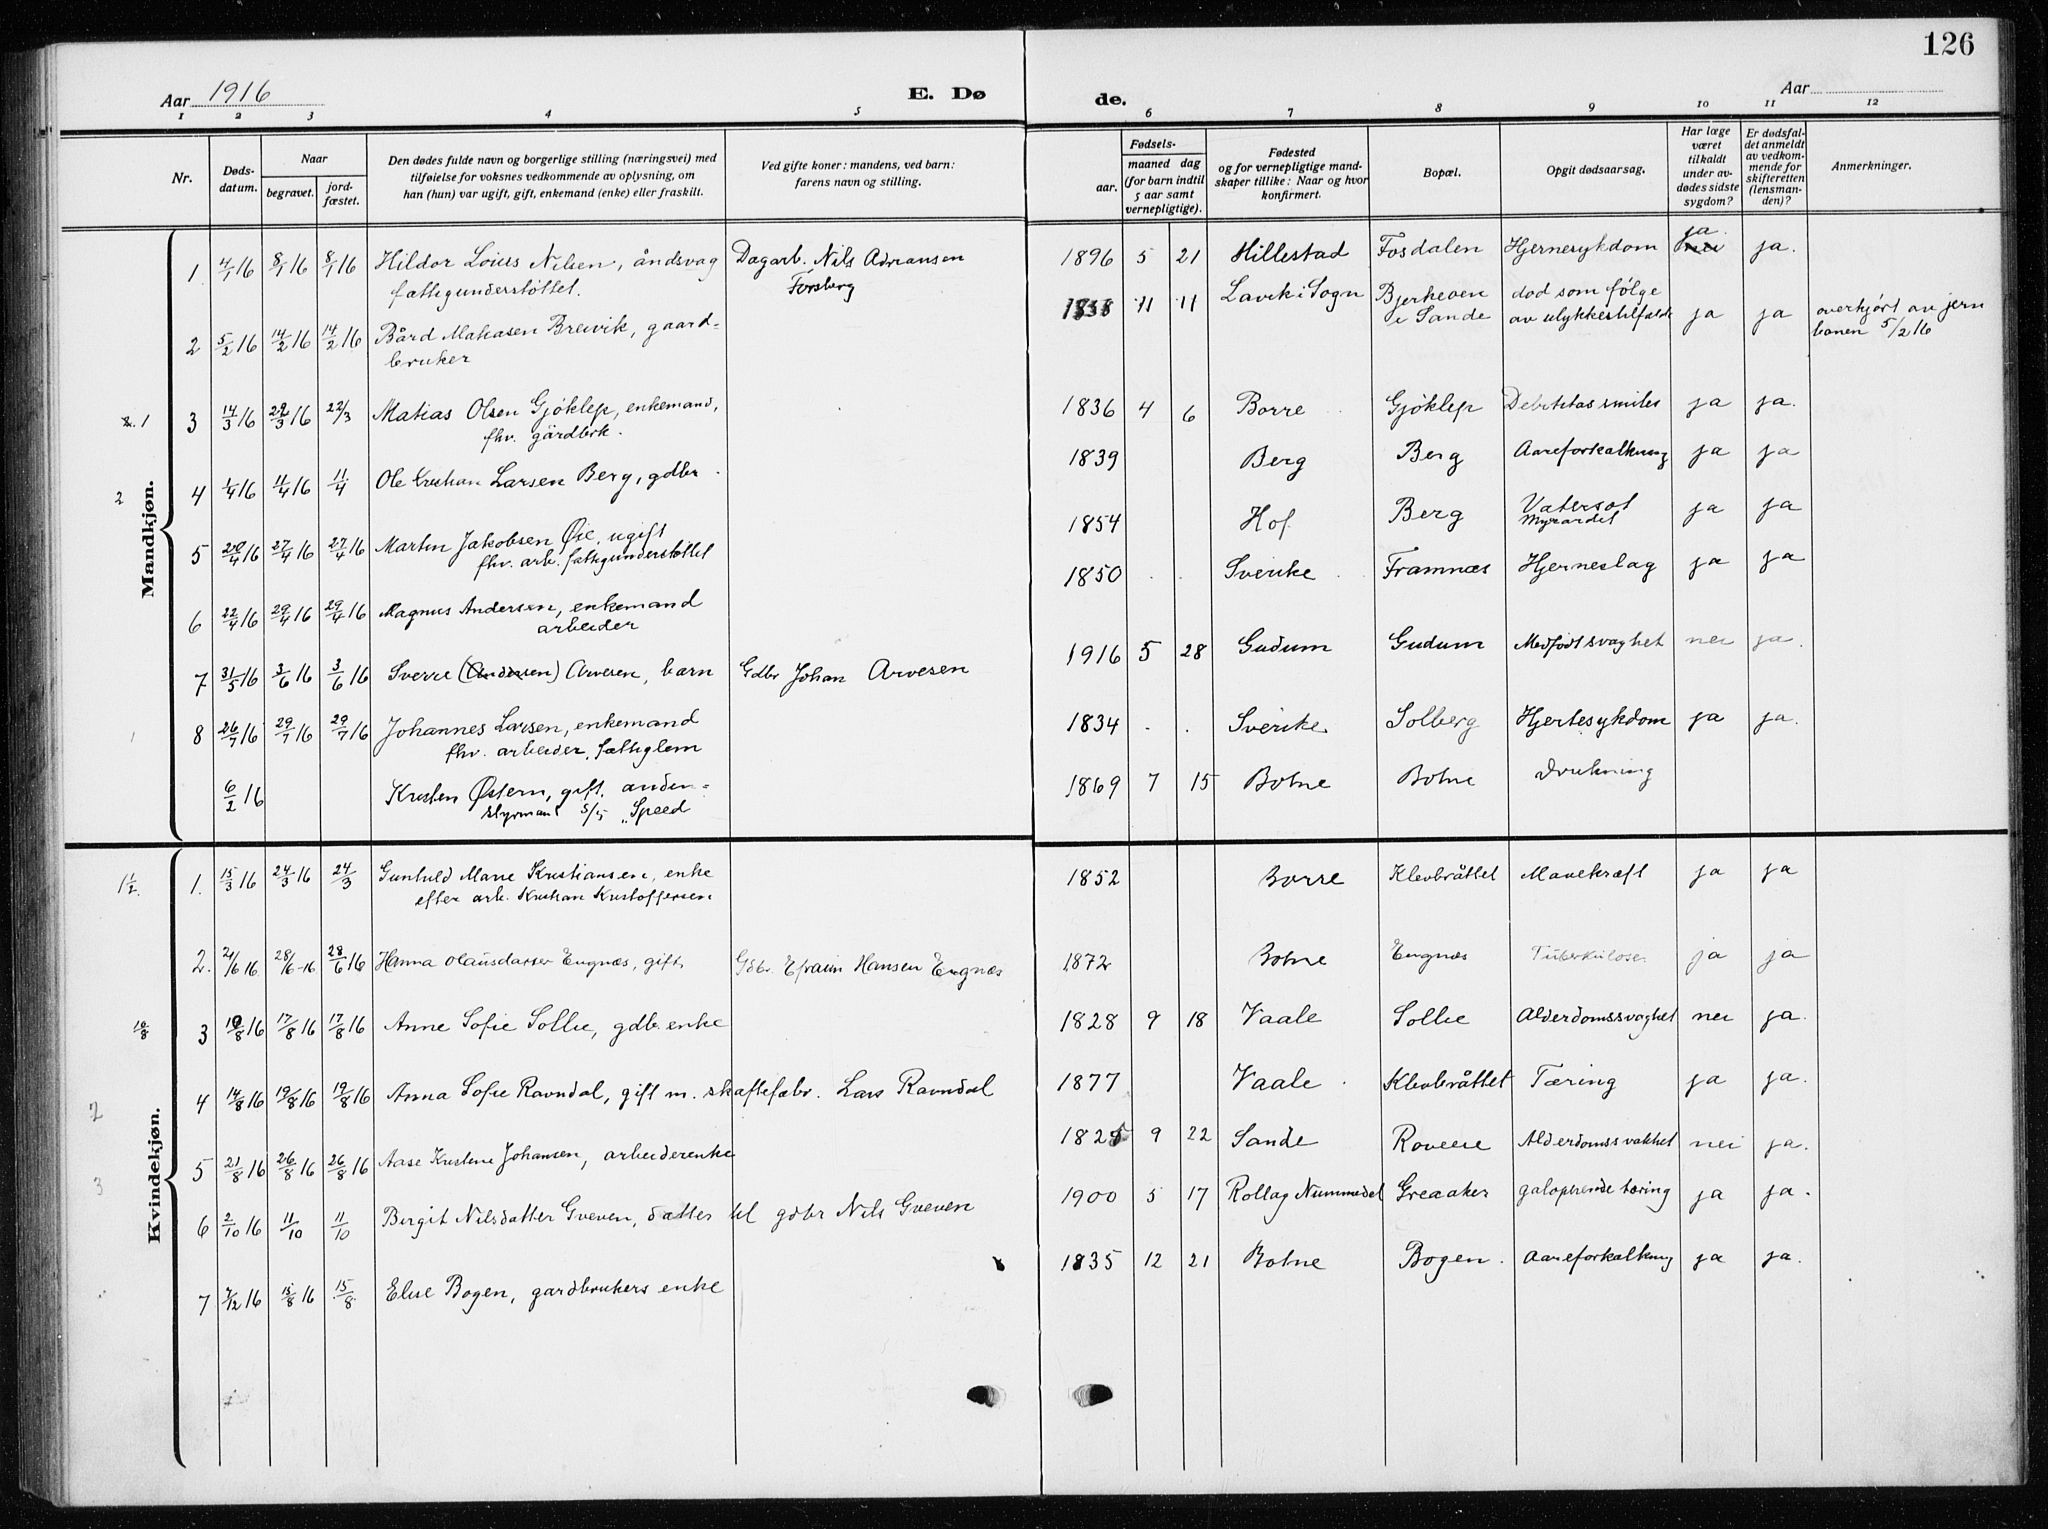 126
Aar 1916
E. Dø
de.
Aar
1 2 3 4 5 6 7 8 9 10 11 12
Nr.
Døds-
datum.
Naar
begravet.
jord-
fæstet.
Den dødes fulde navn og borgerlige stilling (næringsvei) med
tilføielse for voksnes vedkommende av oplysning, om
han (hun) var ugift, gift, enkemand (enke) eller fraskilt.
Ved gifte koner: mandens, ved barn:
farens navn og stilling.
Fødsels-
aar.
maaned dag
(for barn indtil
5 aar samt
vernepligtige).
Fødested
og for vernepligtige mand-
skaper tillike: Naar og hvor
konfirmert.
Bopæl.
Opgit dødsaarsag.
Har læge
været
tilkaldt
under av-
dødes sidste
sygdom?
Er dødsfal-
det anmeldt
av vedkom-
mende for
skifteretten
(lensman-
den)?
Anmerkninger.
Mandkjøn.
1. 4/1 16 8/1 16 8/1 16 Hildor Loius Nilsen, åndsvag Dagarb. Nils Adriansen 1896 5 21 Hillestad Fosdalen Hjernesykdom ja. ja.
fattigunderstøttet. Forsberg
2 5/2 16 14/2 16 14/2 16 Bård Matiasen Breivik, gaard- 1838 11 11 Lavik i Sogn Bjerkeøen død som følge ja ja overkjørt av jern
bruker i Sande av ulykkestilfælde banen 5/2 16
1 3 14/3 16 22/3 16 22/3 Matias Olsen Gjøklep, enkemand, 1836 4 6 Borre Gjøklep Debilitas senilis ja ja.
fhv. gårdbrk.
2 4 1/4 16 11/4 16 11/4 Ole Kristian Larsen Berg, gdbr. 1839 Berg Berg Aareforkalkning ja ja
5 20/4 16 27/4 16 27/4 16 Martin Jakobsen Øie, ugift 1854 Hof Berg Vatersot ja ja
fhv. arb. fattigunderstøttet Myrardet
6 22/4 16 29/4 16 29/4 16 Magnus Andersen, enkemand 1850 . . Sverike Framnæs Hjerneslag ja ja
arbeider
7 31/5 16 3/6 16 3/6 16 Sverre (Andersen) Arvesen, barn Gdbr Johan Arvesen 1916 5 28 Gudum Gudum Medfødt svaghet nei ja.
1 8 26/7 16 29/7 16 29/7 16 Johannes Larsen, enkemand 1834 . . Sverike Solberg Hjertesykdom ja ja.
fhv. arbeider, fattiglem
6/2 16 Kristen Østern, gift, anden- 1869 7 15 Botne Botne Drukning
styrmand S/S "Speed
Kvindekjøn.
1 1/2. 1. 15/3 16 24/3 16 24/3 Gunhild Marie Kristiansen, enke 1852 Borre Klevbråttet Mavekræft ja ja
efter arb. Kristian Kristoffersen
2. 21/6 16 28/6-16 28/6 16 Hanna Olausdatter Engnæs, gift, Gdbr. Efraim Hansen Engnæs 1872 Botne Engnæs Tuberkulose ja ja
10/8 3 10/8 16 17/8 16 17/8 16 Anne Sofie Sollie, gdb. enke 1828 9 18 Vaale Sollie Alderdomssvaghet nei ja.
2 4 14/8 16 19/8 16 19/8 16 Anna Sofie Ravndal, gift m. skaftefabr. Lars Ravndal 1877 Vaale. Klevbråttet Tæring ja ja.
3 5 21/8 16 26/8 16 26/8 16 Aase Kristine Johansen, arbeiderenke 1825 9 22 Sande Roveie Alderdomssvakhet nei ja.
6 2/10 16 11/10 11/10 Birgit Nilsdatter Gveven, datter til gdbr Nils Gveven 1900 5 17 Rollag Nummedal Greaaker galoperende tæring ja ja.
7 7/12 16 15/8 16 15/8. Elise Bogen, gardbrukers enke 1835 12 21 Botne Bogen. Aareforkalkning ja ja.